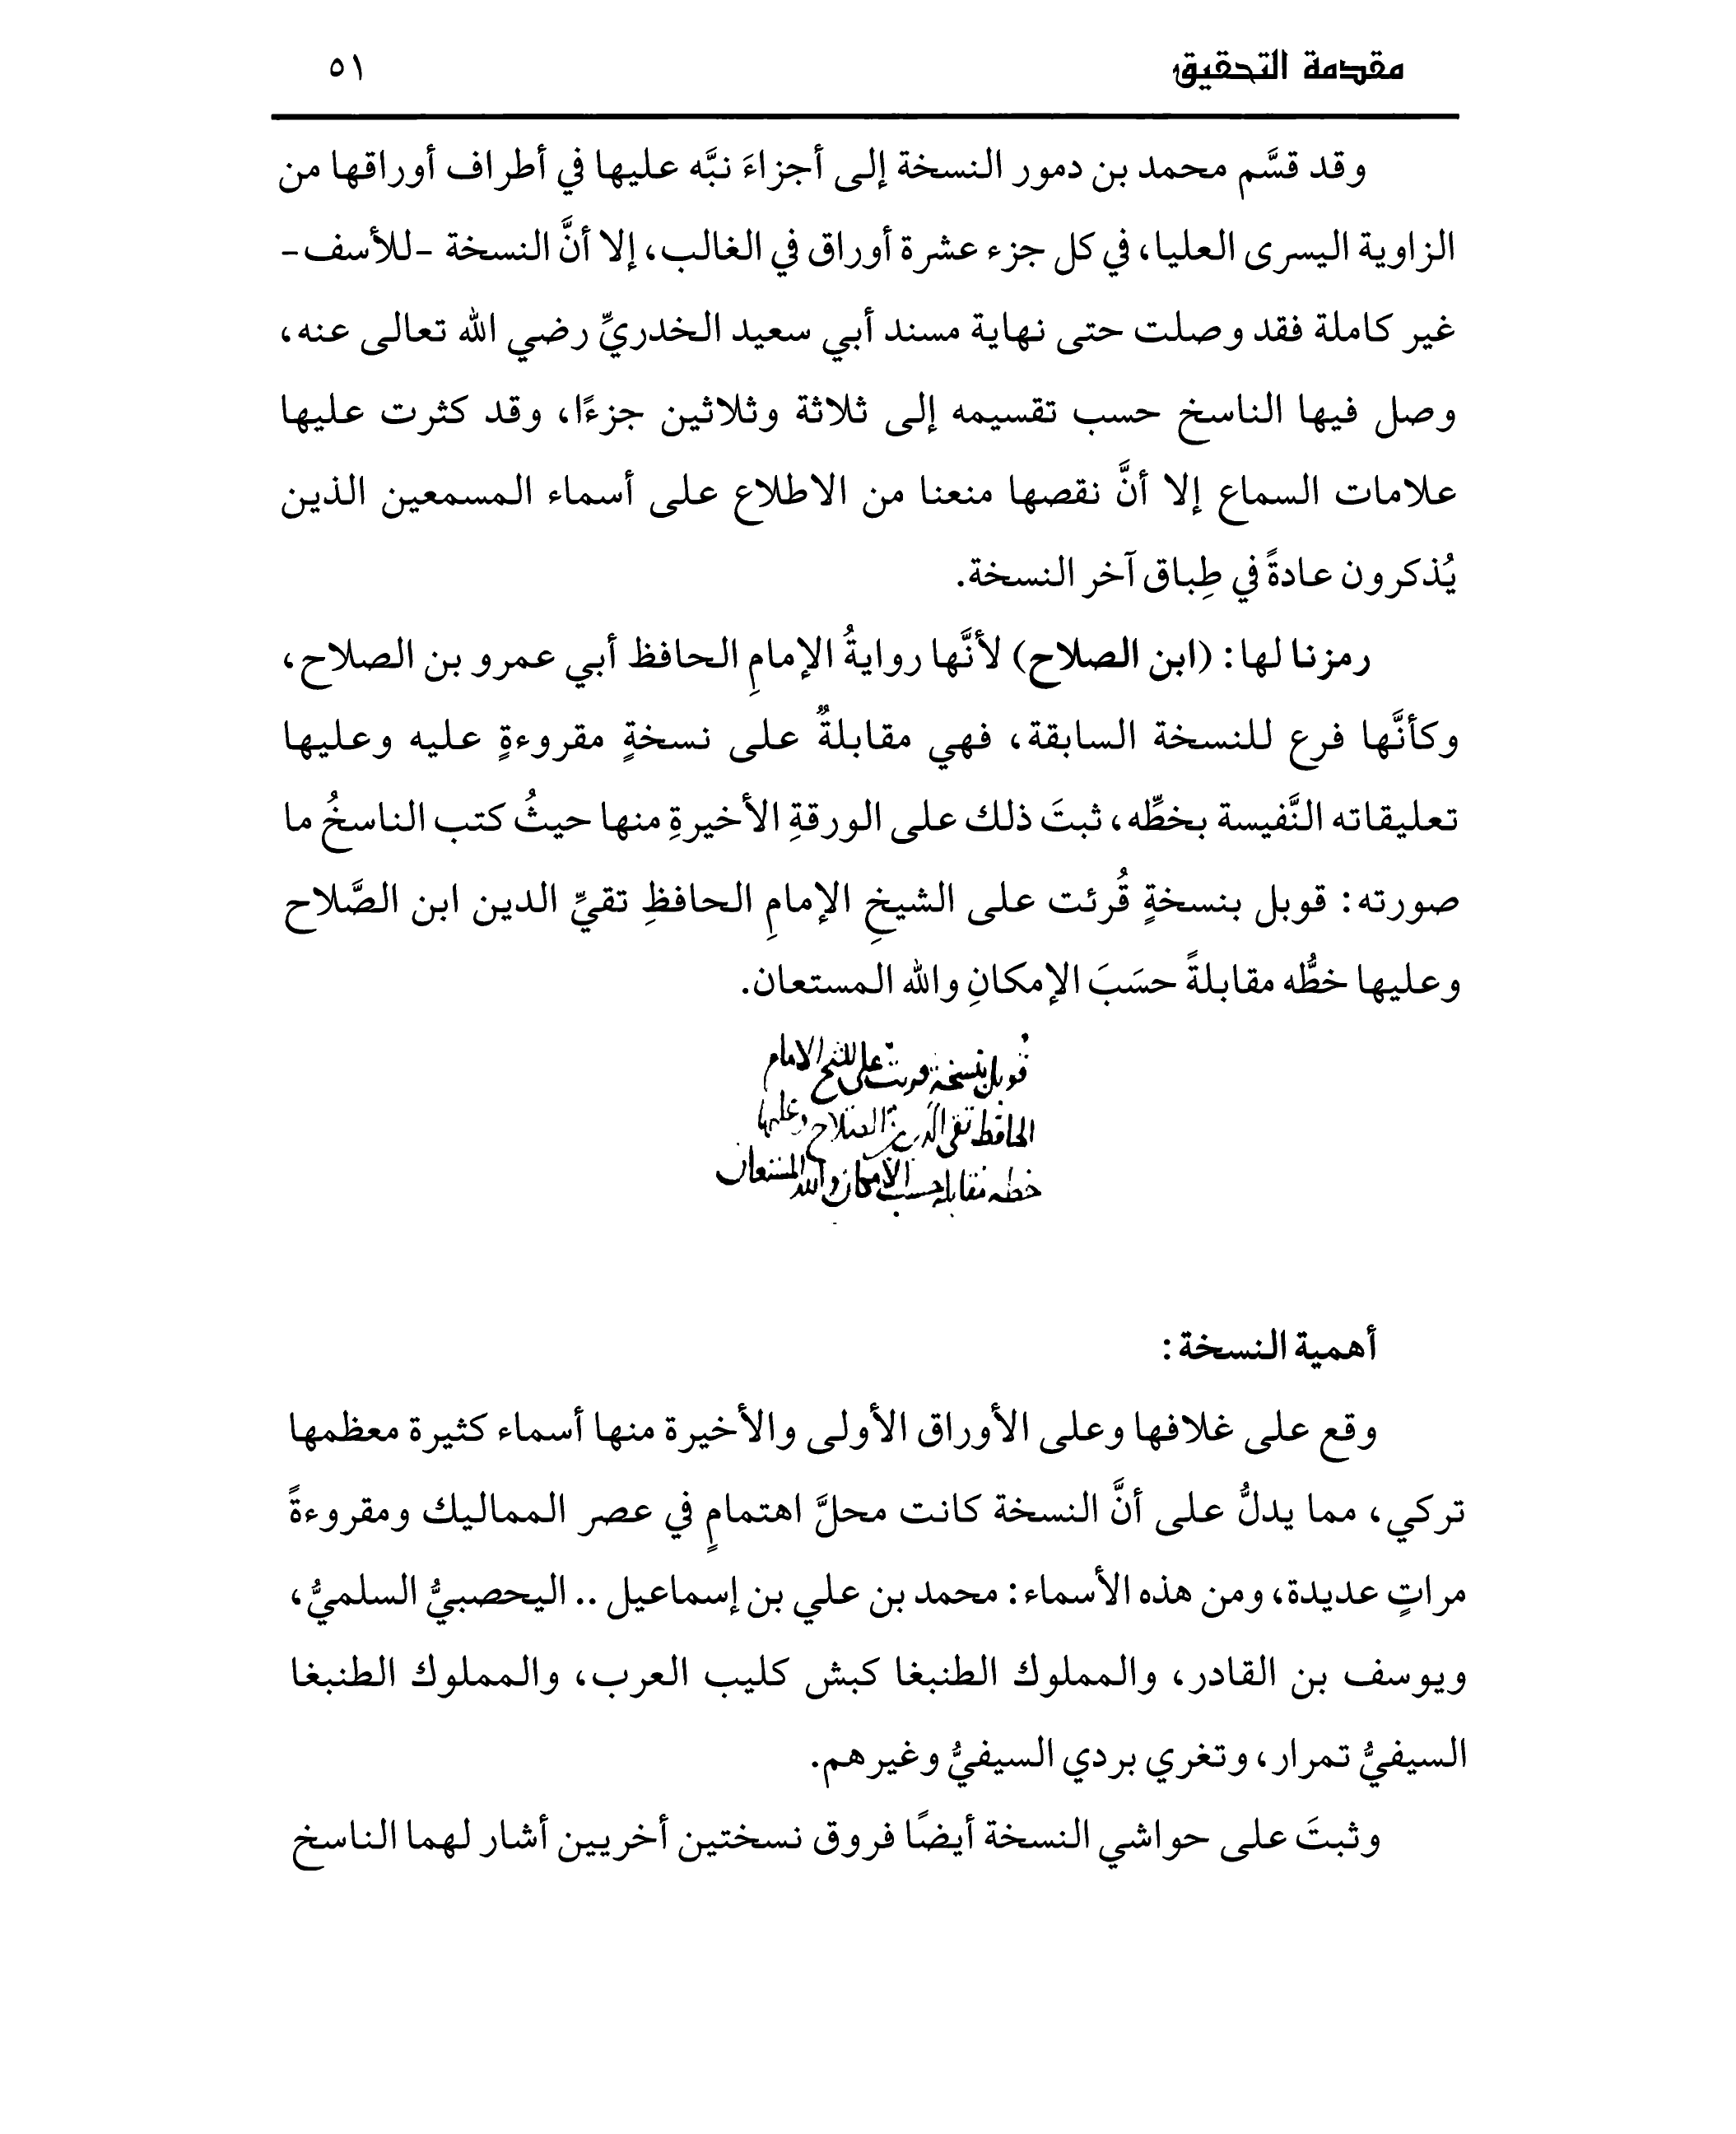 مقدمة التحقيق ٥١
وقد قسَّم محمد بن دمور النسخة إلى أجزاءَ نبَّه عليها في أطراف أوراقها من
الزاوية اليسرى العليا، في كل جزء عشرة أوراق في الغالب، إلا أنَّ النسخة -للأسف-
غير كاملة فقد وصلت حتى نهاية مسند أبي سعيد الخدريِّ رضي الله تعالى عنه،
وصل فيها الناسخ حسب تقسيمه إلى ثلاثة وثلاثين جزءًا، وقد كثرت عليها
علامات السماع إلا أنَّ نقصها منعنا من الاطلاع على أسماء المسمعين الذين
يُذكرون عادةً في طِباق آخر النسخة.
رمزنا لها: (ابن الصلاح) لأنَّها روايةُ الإمامِ الحافظ أبي عمرو بن الصلاح،
وكأنَّها فرع للنسخة السابقة، فهي مقابلةٌ على نسخةٍ مقروءةٍ عليه وعليها
تعليقاته النَّفيسة بخطِّه، ثبتَ ذلك على الورقةِ الأخيرةِ منها حيثُ كتب الناسخُ ما
صورته: قوبل بنسخةٍ قُرئت على الشيخِ الإمامِ الحافظِ تقيِّ الدين ابن الصَّلاح
وعليها خطُّه مقابلةً حسَبَ الإمكانِ والله المستعان.
قوبل بنسخة قريت على الشيخ الامام
الحافظ تقى الدين بن الصلاح وعليها
خطه مقابلة حسب الامكان والله المستعان
أهمية النسخة:
وقع على غلافها وعلى الأوراق الأولى والأخيرة منها أسماء كثيرة معظمها
تركي، مما يدلُّ على أنَّ النسخة كانت محلَّ اهتمامٍ في عصر المماليك ومقروءةً
مراتٍ عديدة، ومن هذه الأسماء: محمد بن علي بن إسماعيل .. اليحصبيُّ السلميُّ،
ويوسف بن القادر، والمملوك الطنبغا كبش كليب العرب، والمملوك الطنبغا
السيفيُّ تمرار، وتغري بردي السيفيُّ وغيرهم.
وثبتَ على حواشي النسخة أيضًا فروق نسختين أخريين أشار لهما الناسخ